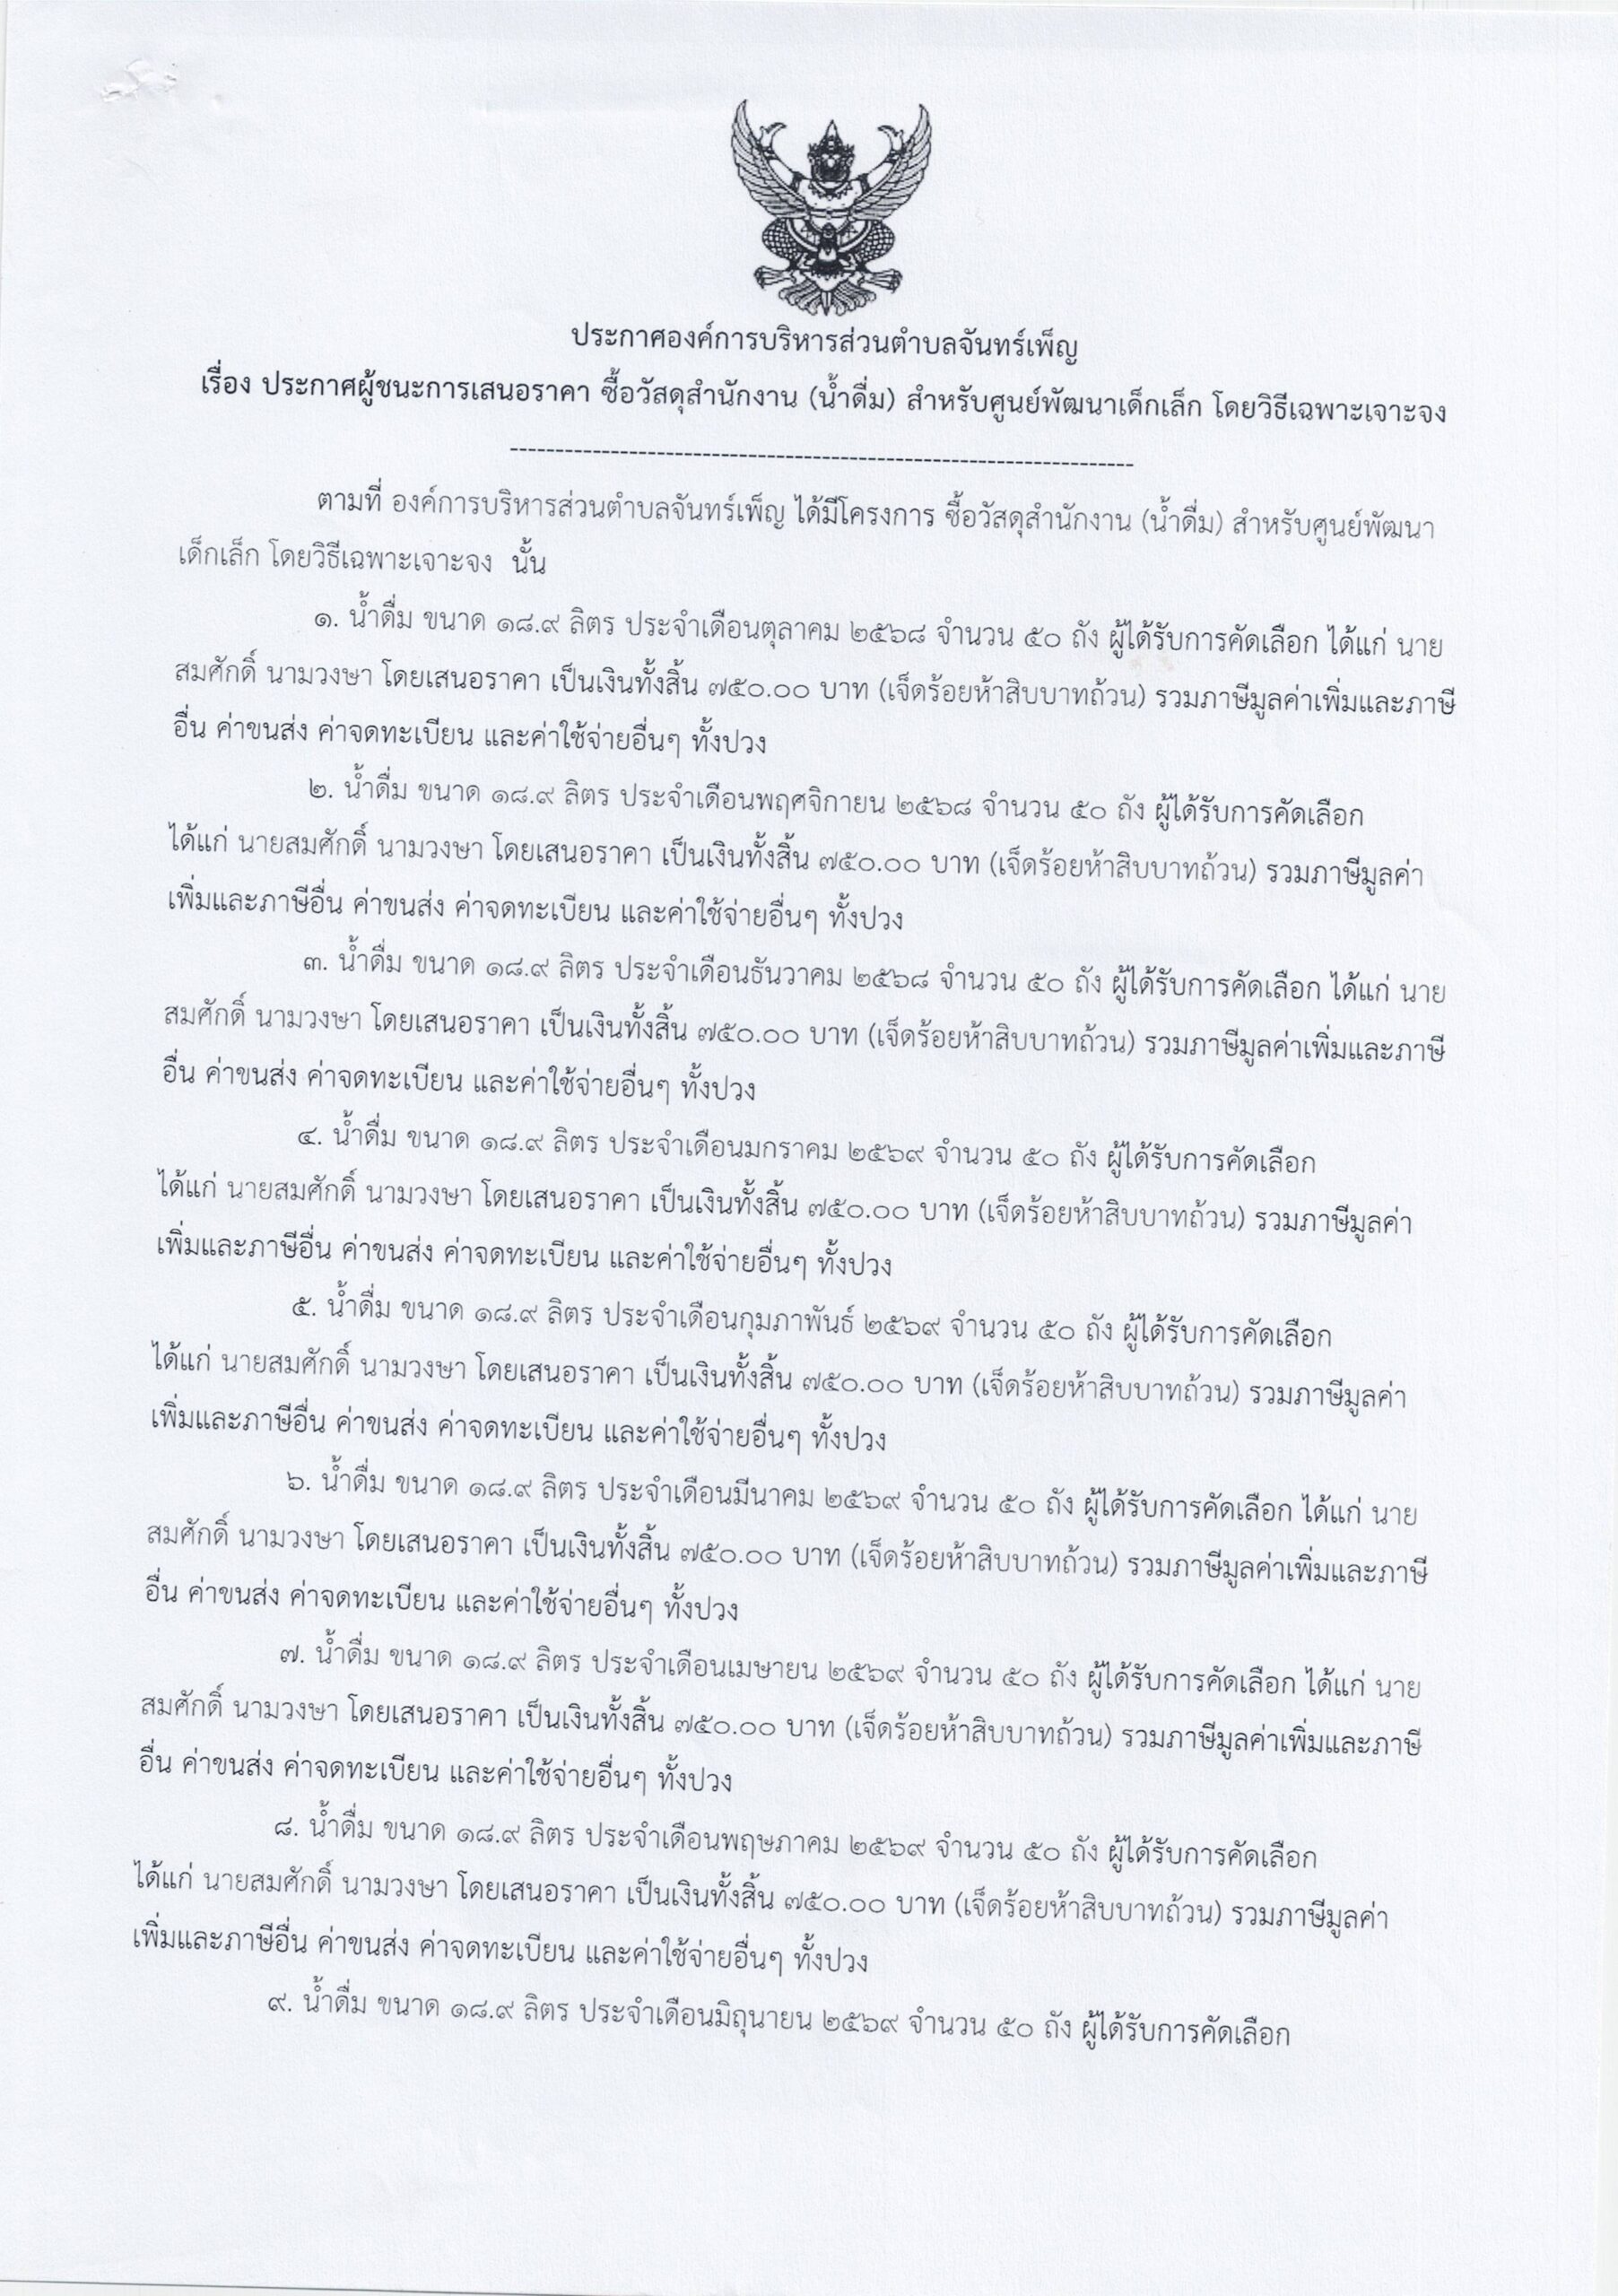 ประกาศองค์การบริหารส่วนตำบลจันทร์เพ็ญ
เรื่อง ประกาศผู้ชนะการเสนอราคา ซื้อวัสดุสำนักงาน (น้ำดื่ม) สำหรับศูนย์พัฒนาเด็กเล็ก โดยวิธีเฉพาะเจาะจง
--------------------------------------------------------------------
ตามที่ องค์การบริหารส่วนตำบลจันทร์เพ็ญ ได้มีโครงการ ซื้อวัสดุสำนักงาน (น้ำดื่ม) สำหรับศูนย์พัฒนา
เด็กเล็ก โดยวิธีเฉพาะเจาะจง  นั้น
๑. น้ำดื่ม ขนาด ๑๘.๙ ลิตร ประจำเดือนตุลาคม ๒๕๖๘ จำนวน ๕๐ ถัง ผู้ได้รับการคัดเลือก ได้แก่ นาย
สมศักดิ์ นามวงษา โดยเสนอราคา เป็นเงินทั้งสิ้น ๗๕๐.๐๐ บาท (เจ็ดร้อยห้าสิบบาทถ้วน) รวมภาษีมูลค่าเพิ่มและภาษี
อื่น ค่าขนส่ง ค่าจดทะเบียน และค่าใช้จ่ายอื่นๆ ทั้งปวง
๒. น้ำดื่ม ขนาด ๑๘.๙ ลิตร ประจำเดือนพฤศจิกายน ๒๕๖๘ จำนวน ๕๐ ถัง ผู้ได้รับการคัดเลือก
ได้แก่ นายสมศักดิ์ นามวงษา โดยเสนอราคา เป็นเงินทั้งสิ้น ๗๕๐.๐๐ บาท (เจ็ดร้อยห้าสิบบาทถ้วน) รวมภาษีมูลค่า
เพิ่มและภาษีอื่น ค่าขนส่ง ค่าจดทะเบียน และค่าใช้จ่ายอื่นๆ ทั้งปวง
๓. น้ำดื่ม ขนาด ๑๘.๙ ลิตร ประจำเดือนธันวาคม ๒๕๖๘ จำนวน ๕๐ ถัง ผู้ได้รับการคัดเลือก ได้แก่ นาย
สมศักดิ์ นามวงษา โดยเสนอราคา เป็นเงินทั้งสิ้น ๗๕๐.๐๐ บาท (เจ็ดร้อยห้าสิบบาทถ้วน) รวมภาษีมูลค่าเพิ่มและภาษี
อื่น ค่าขนส่ง ค่าจดทะเบียน และค่าใช้จ่ายอื่นๆ ทั้งปวง
๔. น้ำดื่ม ขนาด ๑๘.๙ ลิตร ประจำเดือนมกราคม ๒๕๖๙ จำนวน ๕๐ ถัง ผู้ได้รับการคัดเลือก
ได้แก่ นายสมศักดิ์ นามวงษา โดยเสนอราคา เป็นเงินทั้งสิ้น ๗๕๐.๐๐ บาท (เจ็ดร้อยห้าสิบบาทถ้วน) รวมภาษีมูลค่า
เพิ่มและภาษีอื่น ค่าขนส่ง ค่าจดทะเบียน และค่าใช้จ่ายอื่นๆ ทั้งปวง
๕. น้ำดื่ม ขนาด ๑๘.๙ ลิตร ประจำเดือนกุมภาพันธ์ ๒๕๖๙ จำนวน ๕๐ ถัง ผู้ได้รับการคัดเลือก
ได้แก่ นายสมศักดิ์ นามวงษา โดยเสนอราคา เป็นเงินทั้งสิ้น ๗๕๐.๐๐ บาท (เจ็ดร้อยห้าสิบบาทถ้วน) รวมภาษีมูลค่า
เพิ่มและภาษีอื่น ค่าขนส่ง ค่าจดทะเบียน และค่าใช้จ่ายอื่นๆ ทั้งปวง
๖. น้ำดื่ม ขนาด ๑๘.๙ ลิตร ประจำเดือนมีนาคม ๒๕๖๙ จำนวน ๕๐ ถัง ผู้ได้รับการคัดเลือก ได้แก่ นาย
สมศักดิ์ นามวงษา โดยเสนอราคา เป็นเงินทั้งสิ้น ๗๕๐.๐๐ บาท (เจ็ดร้อยห้าสิบบาทถ้วน) รวมภาษีมูลค่าเพิ่มและภาษี
อื่น ค่าขนส่ง ค่าจดทะเบียน และค่าใช้จ่ายอื่นๆ ทั้งปวง
๗. น้ำดื่ม ขนาด ๑๘.๙ ลิตร ประจำเดือนเมษายน ๒๕๖๙ จำนวน ๕๐ ถัง ผู้ได้รับการคัดเลือก ได้แก่ นาย
สมศักดิ์ นามวงษา โดยเสนอราคา เป็นเงินทั้งสิ้น ๗๕๐.๐๐ บาท (เจ็ดร้อยห้าสิบบาทถ้วน) รวมภาษีมูลค่าเพิ่มและภาษี
อื่น ค่าขนส่ง ค่าจดทะเบียน และค่าใช้จ่ายอื่นๆ ทั้งปวง
๘. น้ำดื่ม ขนาด ๑๘.๙ ลิตร ประจำเดือนพฤษภาคม ๒๕๖๙ จำนวน ๕๐ ถัง ผู้ได้รับการคัดเลือก
ได้แก่ นายสมศักดิ์ นามวงษา โดยเสนอราคา เป็นเงินทั้งสิ้น ๗๕๐.๐๐ บาท (เจ็ดร้อยห้าสิบบาทถ้วน) รวมภาษีมูลค่า
เพิ่มและภาษีอื่น ค่าขนส่ง ค่าจดทะเบียน และค่าใช้จ่ายอื่นๆ ทั้งปวง
๙. น้ำดื่ม ขนาด ๑๘.๙ ลิตร ประจำเดือนมิถุนายน ๒๕๖๙ จำนวน ๕๐ ถัง ผู้ได้รับการคัดเลือก